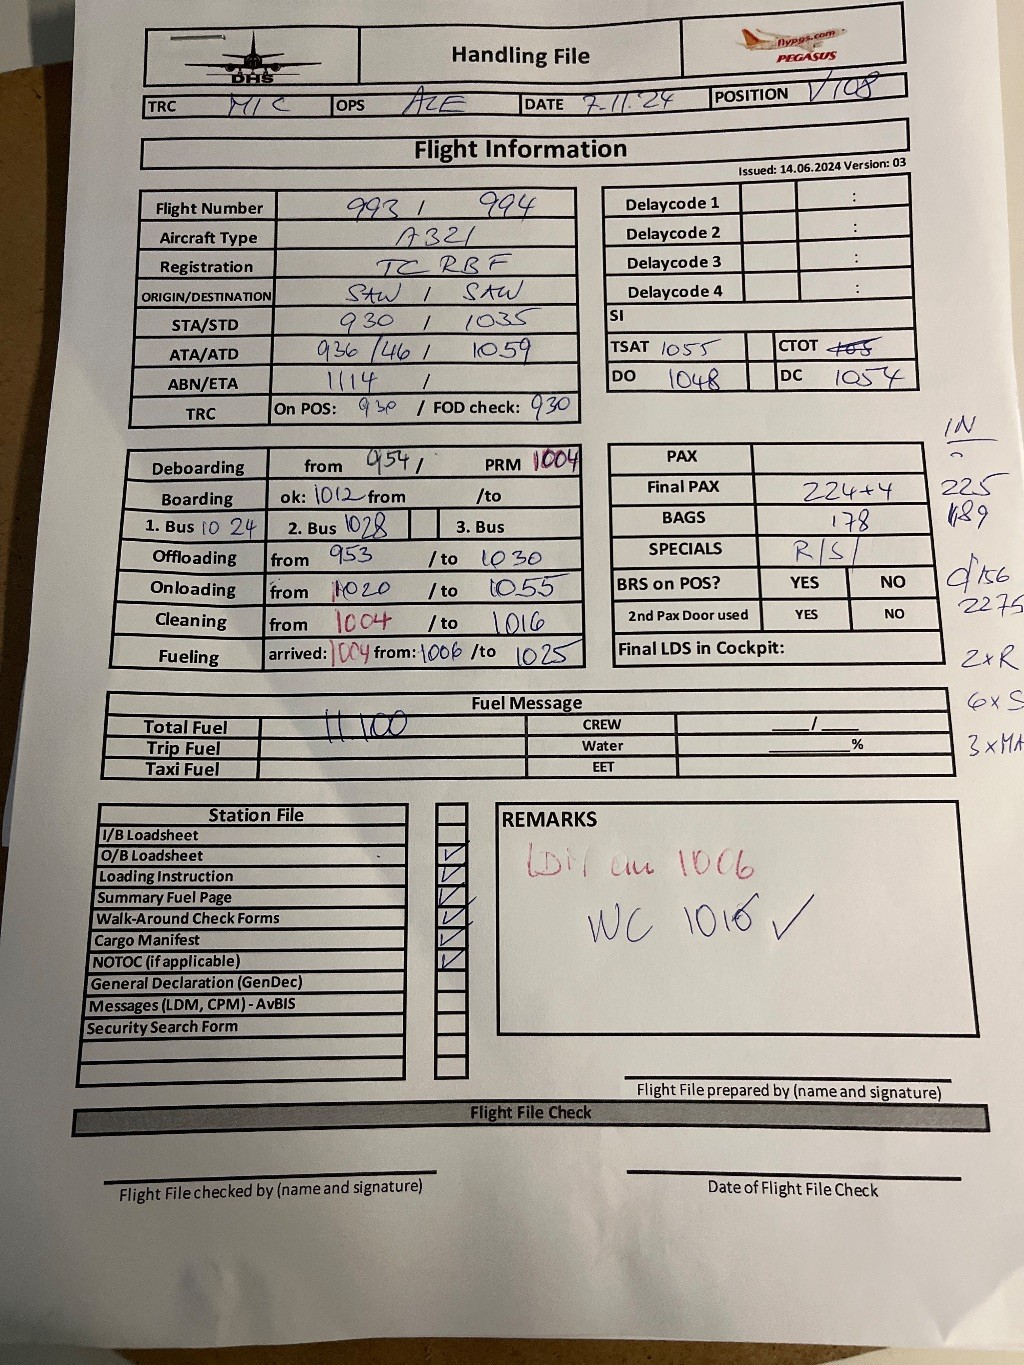 DHS
Handling File
flypgs.com
PEGASUS
TRC MIC OPS ALE DATE 7.11.24 POSITION V108
Flight Information
Issued: 14.06.2024 Version: 03
Flight Number 993 / 994
Aircraft Type A321
Registration TC RBF
ORIGIN/DESTINATION SAW / SAW
STA/STD 930 / 1035
ATA/ATD 936/46 / 1059
ABN/ETA 1114 /
TRC On POS: 930 / FOD check: 930
Delaycode 1 :
Delaycode 2 :
Delaycode 3 :
Delaycode 4 :
SI
TSAT 1055 CTOT
DO 1048 DC 1054
Deboarding from 954 / PRM 1004
Boarding ok: 1012 from /to
1. Bus 1024 2. Bus 1028 3. Bus
Offloading from 953 / to 1030
Onloading from 1020 / to 1055
Cleaning from 1004 / to 1016
Fueling arrived: 1004 from: 1006 /to 1025
PAX
Final PAX 224+4
BAGS 178
SPECIALS R/S/
BRS on POS? YES NO
2nd Pax Door used YES NO
Final LDS in Cockpit:
IN
225
189
156
2275
2xR
6xS
3xMA
Fuel Message
Total Fuel 11.100 CREW ___/___
Trip Fuel Water ______%
Taxi Fuel EET
Station File
I/B Loadsheet
O/B Loadsheet ✓
Loading Instruction ✓
Summary Fuel Page ✓
Walk-Around Check Forms ✓
Cargo Manifest ✓
NOTOC (if applicable) ✓
General Declaration (GenDec)
Messages (LDM, CPM) - AvBIS
Security Search Form
REMARKS
1006
WC 1016 ✓
Flight File prepared by (name and signature)
Flight File Check
Flight File checked by (name and signature)
Date of Flight File Check